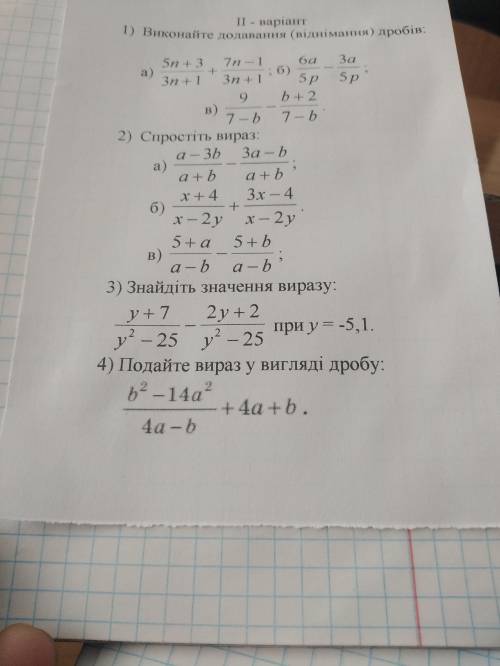 II - варіант
1) Виконайте додавання (віднімання) дробів:
а) (5n + 3)/(3n + 1) + (7n − 1)/(3n + 1) ; б) 6a/5p − 3a/5p ;
в) 9/(7 − b) − (b + 2)/(7 − b) .
2) Спростіть вираз:
а) (a − 3b)/(a + b) − (3a − b)/(a + b) ;
б) (x + 4)/(x − 2y) + (3x − 4)/(x − 2y) .
в) (5 + a)/(a − b) − (5 + b)/(a − b) ;
3) Знайдіть значення виразу:
(y + 7)/(y² − 25) − (2y + 2)/(y² − 25) при y = -5,1.
4) Подайте вираз у вигляді дробу:
(b² − 14a²)/(4a − b) + 4a + b .